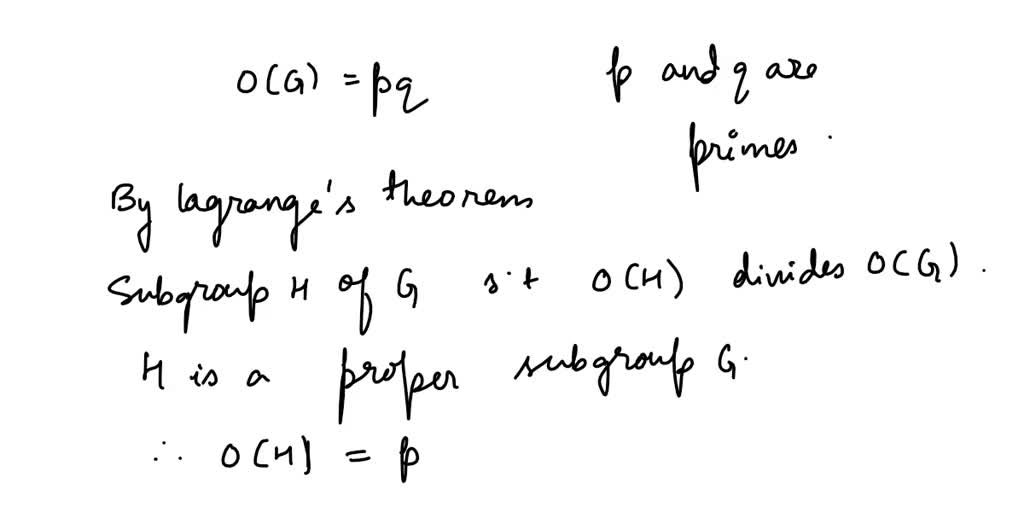 O(G) = pq p and q are
primes.
By lagrange's theorem
Subgroup H of G s.t O(H) divides O(G).
H is a proper subgroup G.
∴ O(H) = p